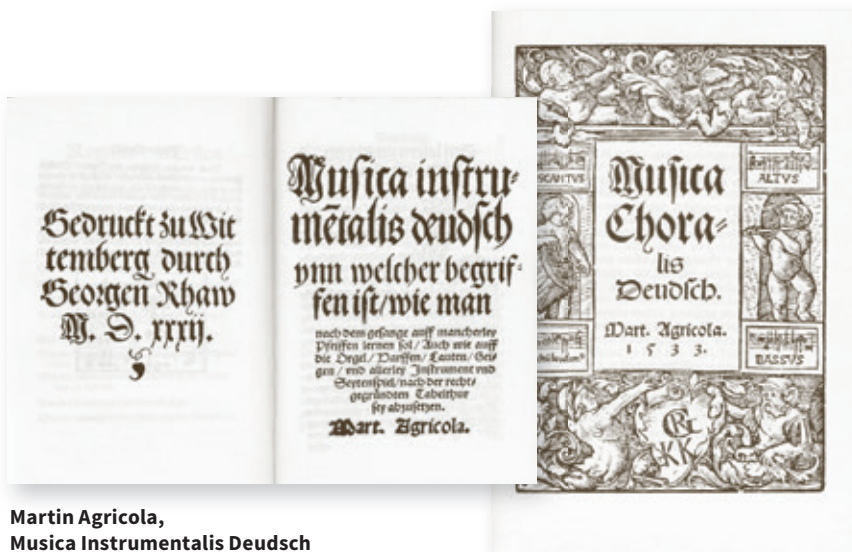 Gedruckt zu Wit
temberg durch
Georgen Rhaw
M. D. xxxij.
Musica instru⸗
mētalis deudsch
ynn welcher begrif⸗
fen ist/wie man
nach dem gesange auff mancherley
Pfeiffen lernen sol/ Auch wie auff
die Orgel/ Harffen/ Lauten/ Gei⸗
gen/ vnd allerley Instrument vnd
Seytenspiel/ nach der recht⸗
gegründten Tabelthur
sey abzusetzen.
Mart. Agricola.
SCANTVS
ALTVS
Musica
Chora⸗
lis
Deudsch.
Mart. Agricola.
1 5 3 3.
BASSVS
Martin Agricola,
Musica Instrumentalis Deudsch